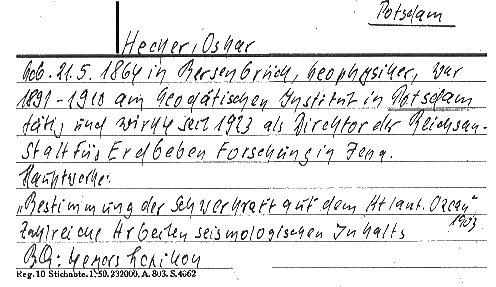 Potsdam
Hecker, Oskar
Geb. 21.5. 1864 in Bersenbrück, Geophysiker, war
1891-1910 am Geodätischen Institut in Potsdam
tätig und wirkte seit 1923 als Direktor der Reichsan-
stalt für Erdbeben Forschung in Jena.
Hauptwerke:
„Bestimmung der Schwerkraft auf dem Atlant. Ozean"
1903
Zahlreiche Arbeiten seismologischen Inhalts
BQ: Meyers Lexikon
Reg. 10 Stichabte. I. 50. 232000. A. 803. S. 4662